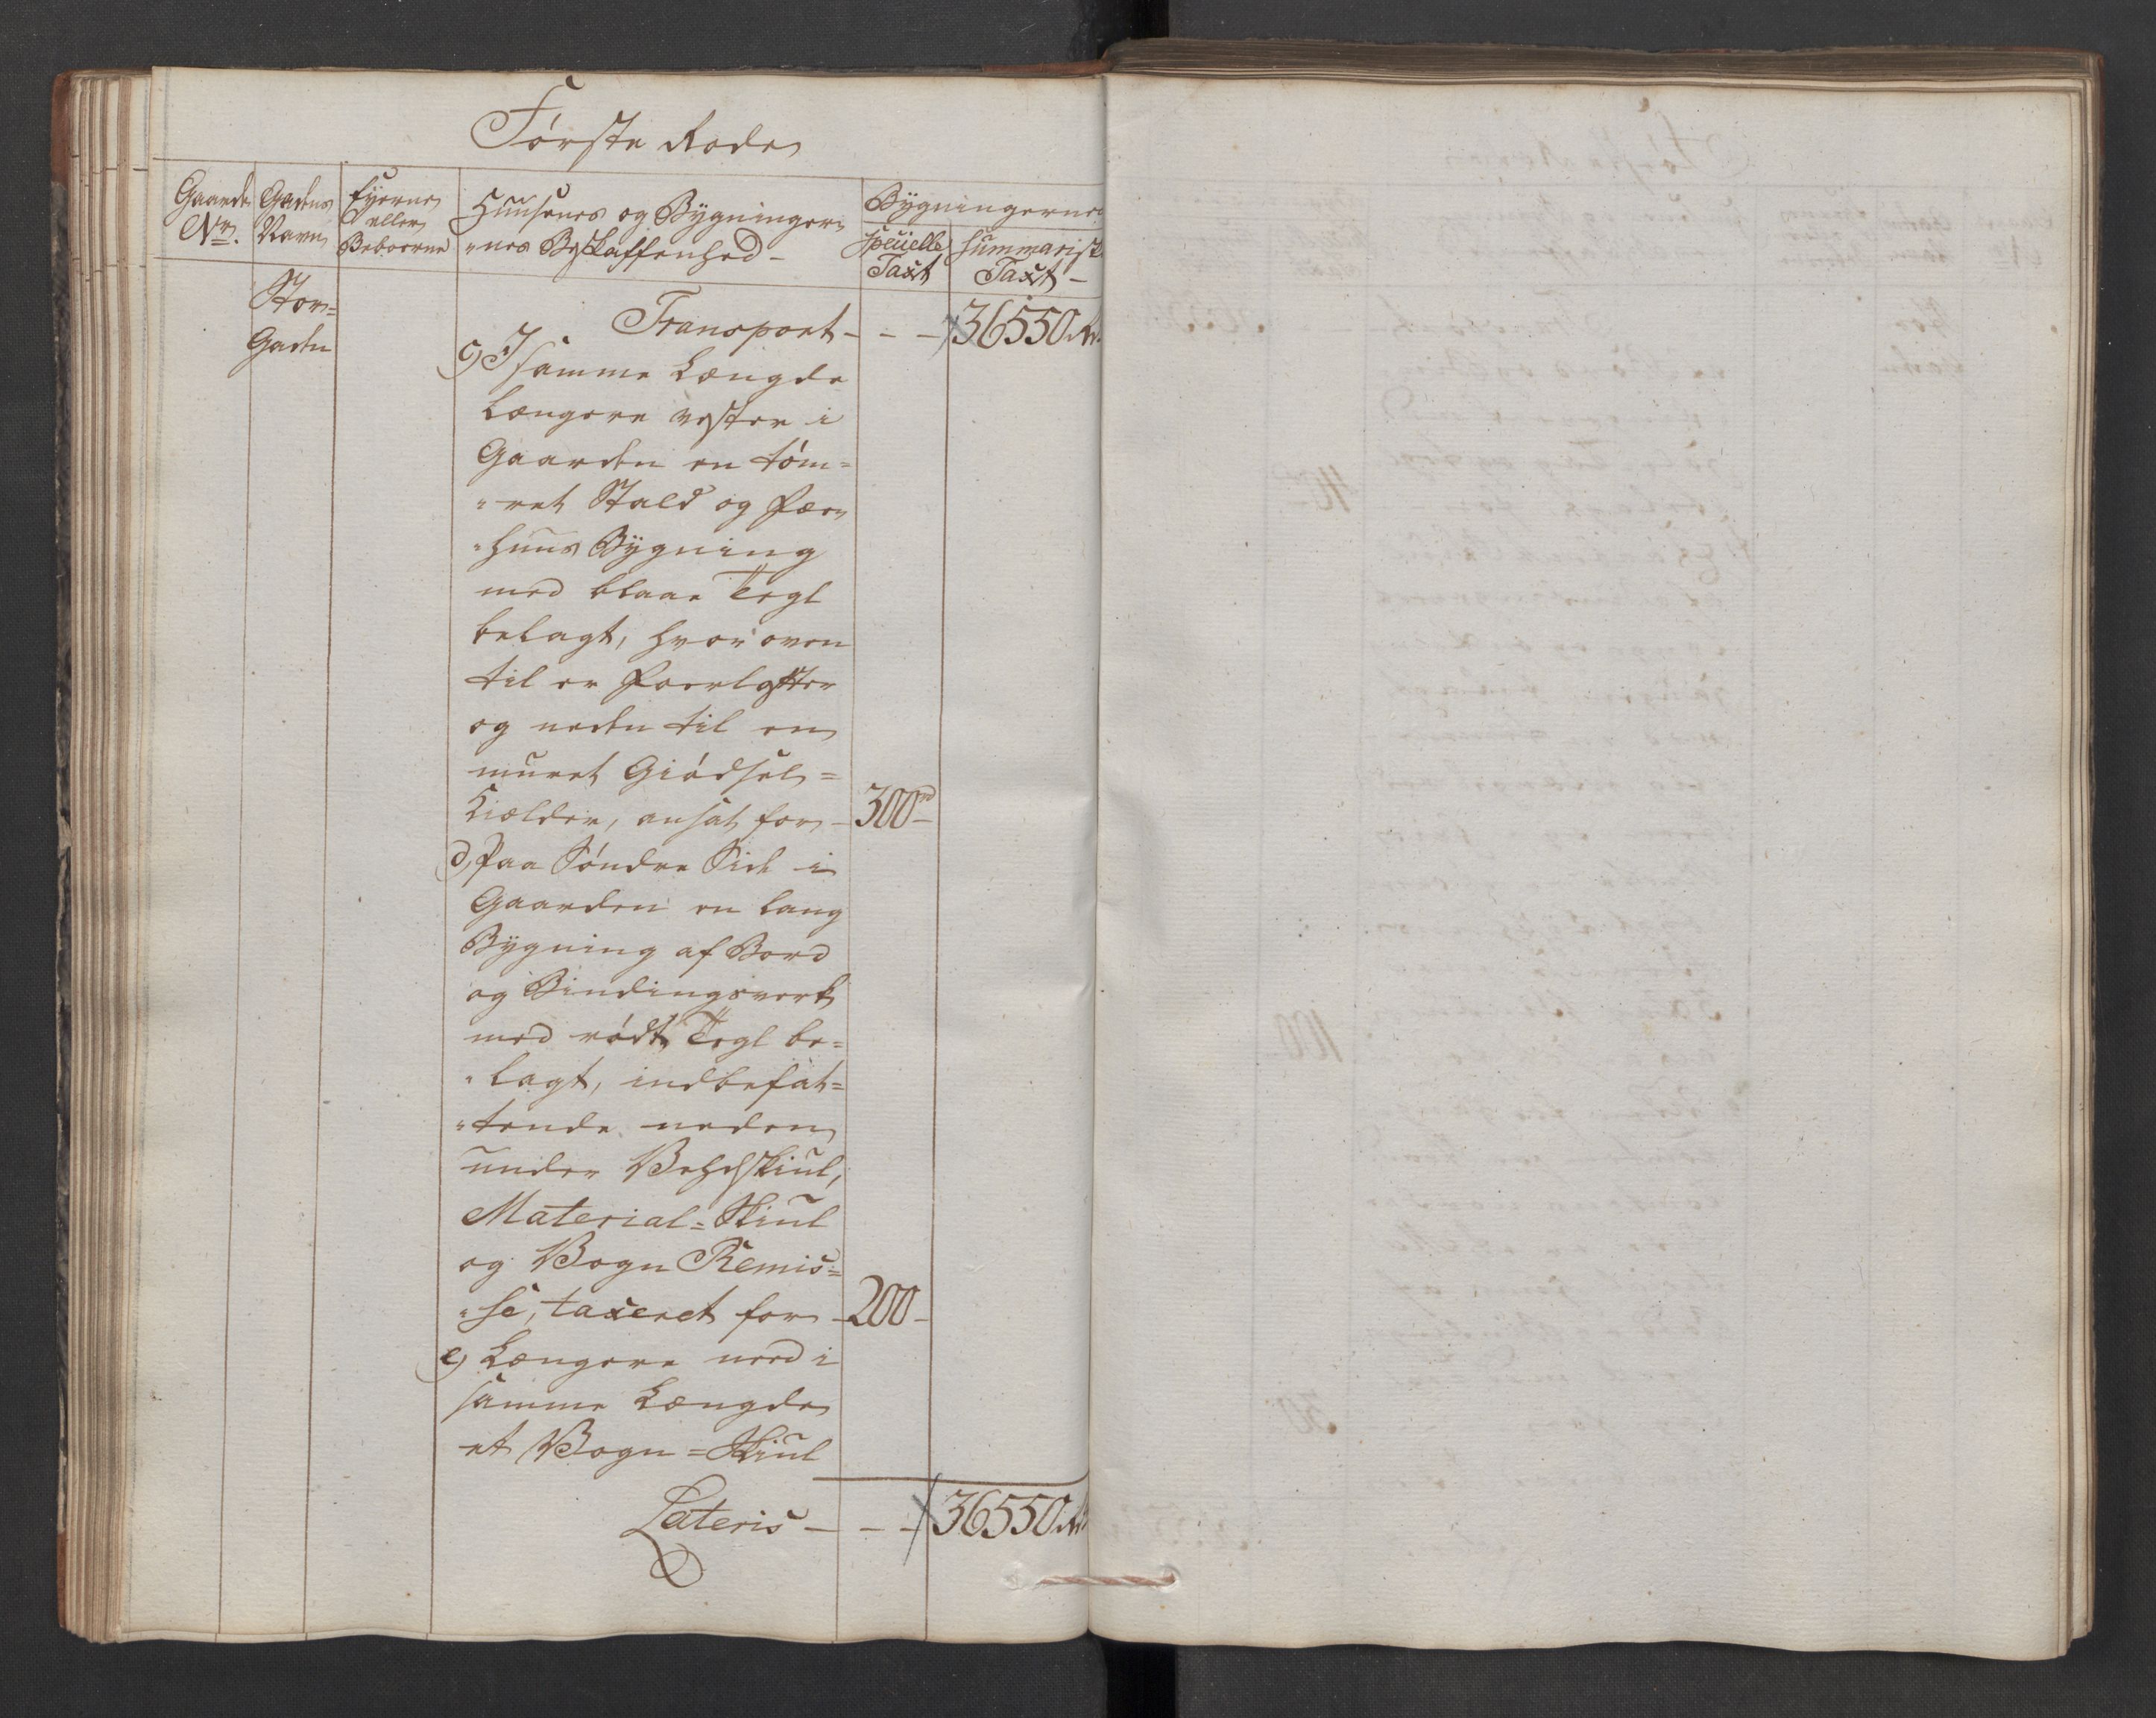 Første Rode
Gaarde Nr. Gadens Navn Eyerne eller Beboerne Huusenes og Bygninger-
"nes Beskaffenhed - Bygningernes
specielle Taxt summarisk Taxt -
Stor=
Gaden
Transport - - - 36550 Rd
c) I samme Længde
længere vester i
Gaarden en tøm=
"ret Stald og Fæe
"huus Bygning
med blaae Tegl
belagt, hvor oven
til er Foerloftter
og neden til en
muret Giødsel=
Kielder, ansat for - 300rd -
d, Paa Søndre Side i
Gaarden en lang
Bygning af Bord
og Bindingsverk
med rødt Tegl be=
"lagt, indbefat=
"tende neden
under Vedskiul,
Material=Skiul
og Vogn Remis=
"se, taxeret for - 200 -
e) Længere nord i
samme Længde
et Vogn=Skiul
Lateris - - - 36550 Rd